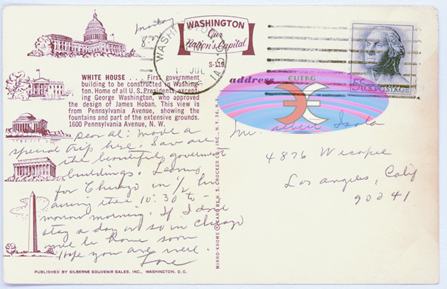 WASHINGTON
Our
Nation's Capital
S-119
WASHINGTON
JUL
5c U.S. POSTAGE
WHITE HOUSE First government
building to be constructed in Washing-
ton. Home of all U.S. Presidents, except-
ing George Washington, who approved
the design of James Hoban. This view is
from Pennsylvania Avenue, showing the
fountains and part of the extensive grounds.
1600 Pennsylvania Avenue, N. W.
address
Dear al: made a
special trip here. Saw all
the beautiful government
buildings. Leaving
for Chicago in 1/2 hr.
arriving there 10:30 to-
morrow morning. If I don't
stay a day or so in Chicago
will be home soon
Hope you are well.
Love
4876
Los Angeles, Calif
90041
PUBLISHED BY SILBERNE SOUVENIR SALES, INC., WASHINGTON, D.C.